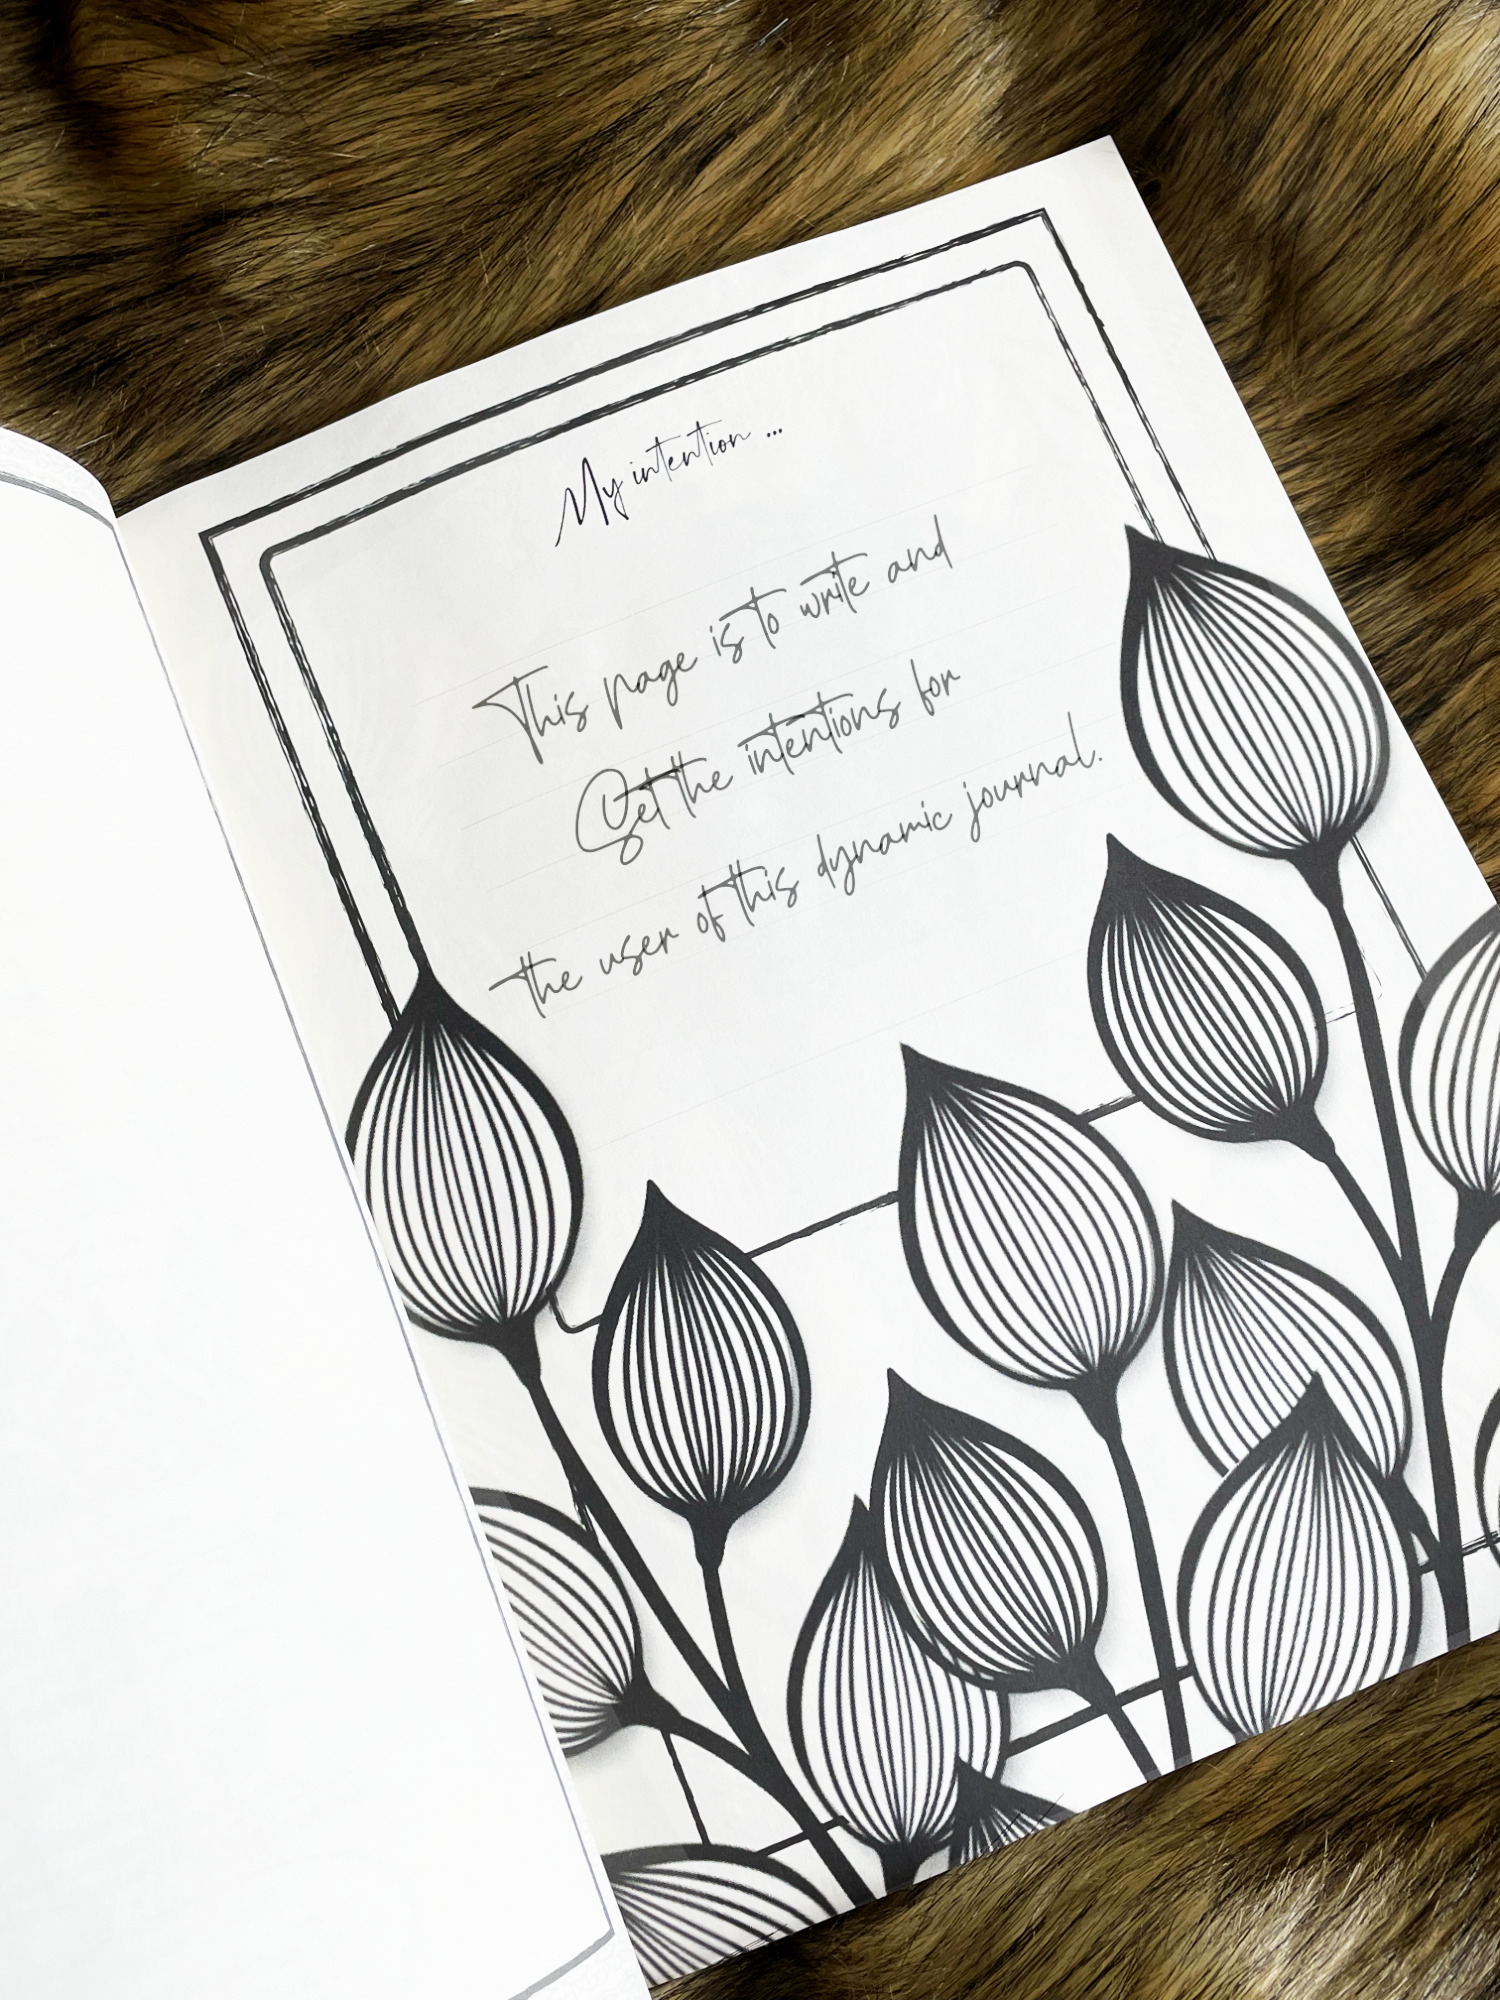 My intention ...
This page is to write and
Set the intentions for
the user of this dynamic journal.